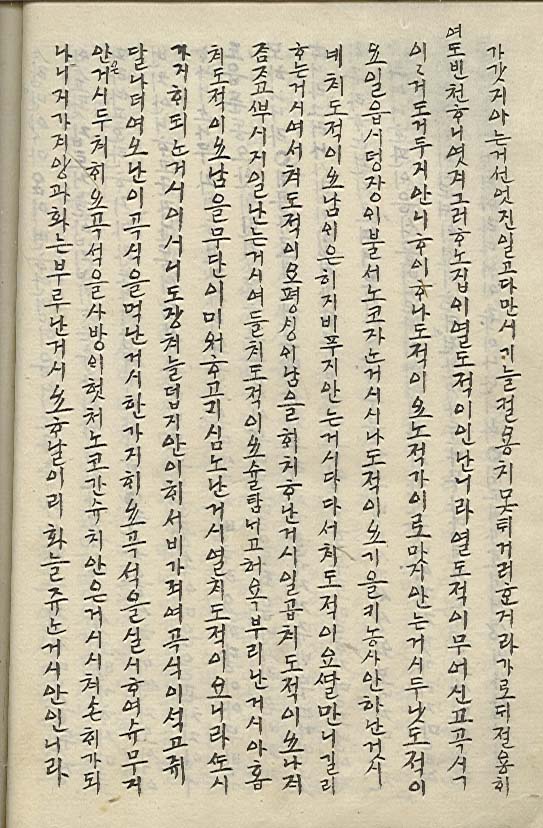 가갓지아는거선엇진일고다만시기늘절용치못튀거러호거라가로디절용히
여도빈천호니엿져그러호노집이열도적이인난니라열도적이무어신고곡식
이 거도거두지안니호이호나도적이요노적가이로마자안는거시두낫도적이
요일읍시텅장의불서노코자는거시시나도적이요기을키농사안하난것시
네치도적이요남의은히지비푸지안는거시다다서치도적이요쌀만니길리
호는거시여서쳐도적이요평싱의남을히치호난거시일곱쳐도적이요나져
줌조고쌔부시지일난는거시여들치도적이요슐탐니고허욕부리난거시아홉
쳐도적이요남을무단이미워호고긔심노난거시열치도적이요니라쏘시
가지히되는거시이시니도장쳐늘덥지안이히서비가져여곡식이석고쥐
달나더여오난이곡식을먹난거시한가지히요곡석을실시호여슈무지
안거시두치히요곡석을사방이헛처노코간슈치안은거시시쳐손히가되
나니지가져앙과화는부루난거시요호날이리화늘쥬는거시안인니라